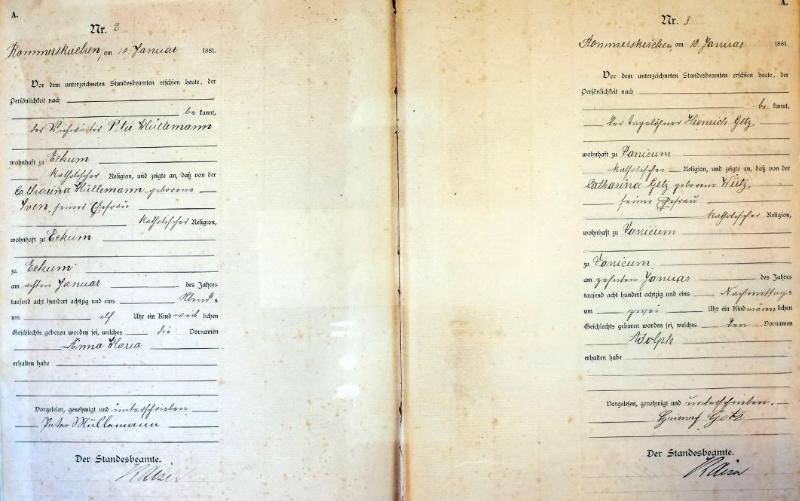 A.
Nr. 2
Rommerskirchen, am 10. Januar 1881.
Vor dem unterzeichneten Standesbeamten erschien heute, der
Persönlichkeit nach
be kannt,
der Peter Müllemann
wohnhaft zu Eckum
katholischer Religion, und zeigte an, daß von der
Catharina Müllemann geborene
Iven, seiner Ehefrau
katholischer Religion,
wohnhaft zu Eckum
zu Eckum
am achten Januar des Jahres
tausend acht hundert achtzig und eins Abends
um elf Uhr ein Kind weib lichen
Geschlechts geboren worden sei, welches die Vornamen
Anna Maria
erhalten habe
Vorgelesen, genehmigt und unterschrieben
Peter Müllemann
Der Standesbeamte.
A.
Nr. 3
Rommerskirchen, am 10. Januar 1881.
Vor dem unterzeichneten Standesbeamten erschien heute, der
Persönlichkeit nach
be kannt,
der Tagelöhner Heinrich Getz,
wohnhaft zu Vanicum
katholischer Religion, und zeigte an, daß von der
Catharina Getz geborene Wirtz,
seiner Ehefrau
katholischer Religion,
wohnhaft zu Vanicum
zu Vanicum
am zehnten Januar des Jahres
tausend acht hundert achtzig und eins Nachmittags
um zwei Uhr ein Kind männ lichen
Geschlechts geboren worden sei, welches den Vornamen
Adolph
erhalten habe
Vorgelesen, genehmigt und unterschrieben.
Heinrich Getz
Der Standesbeamte.